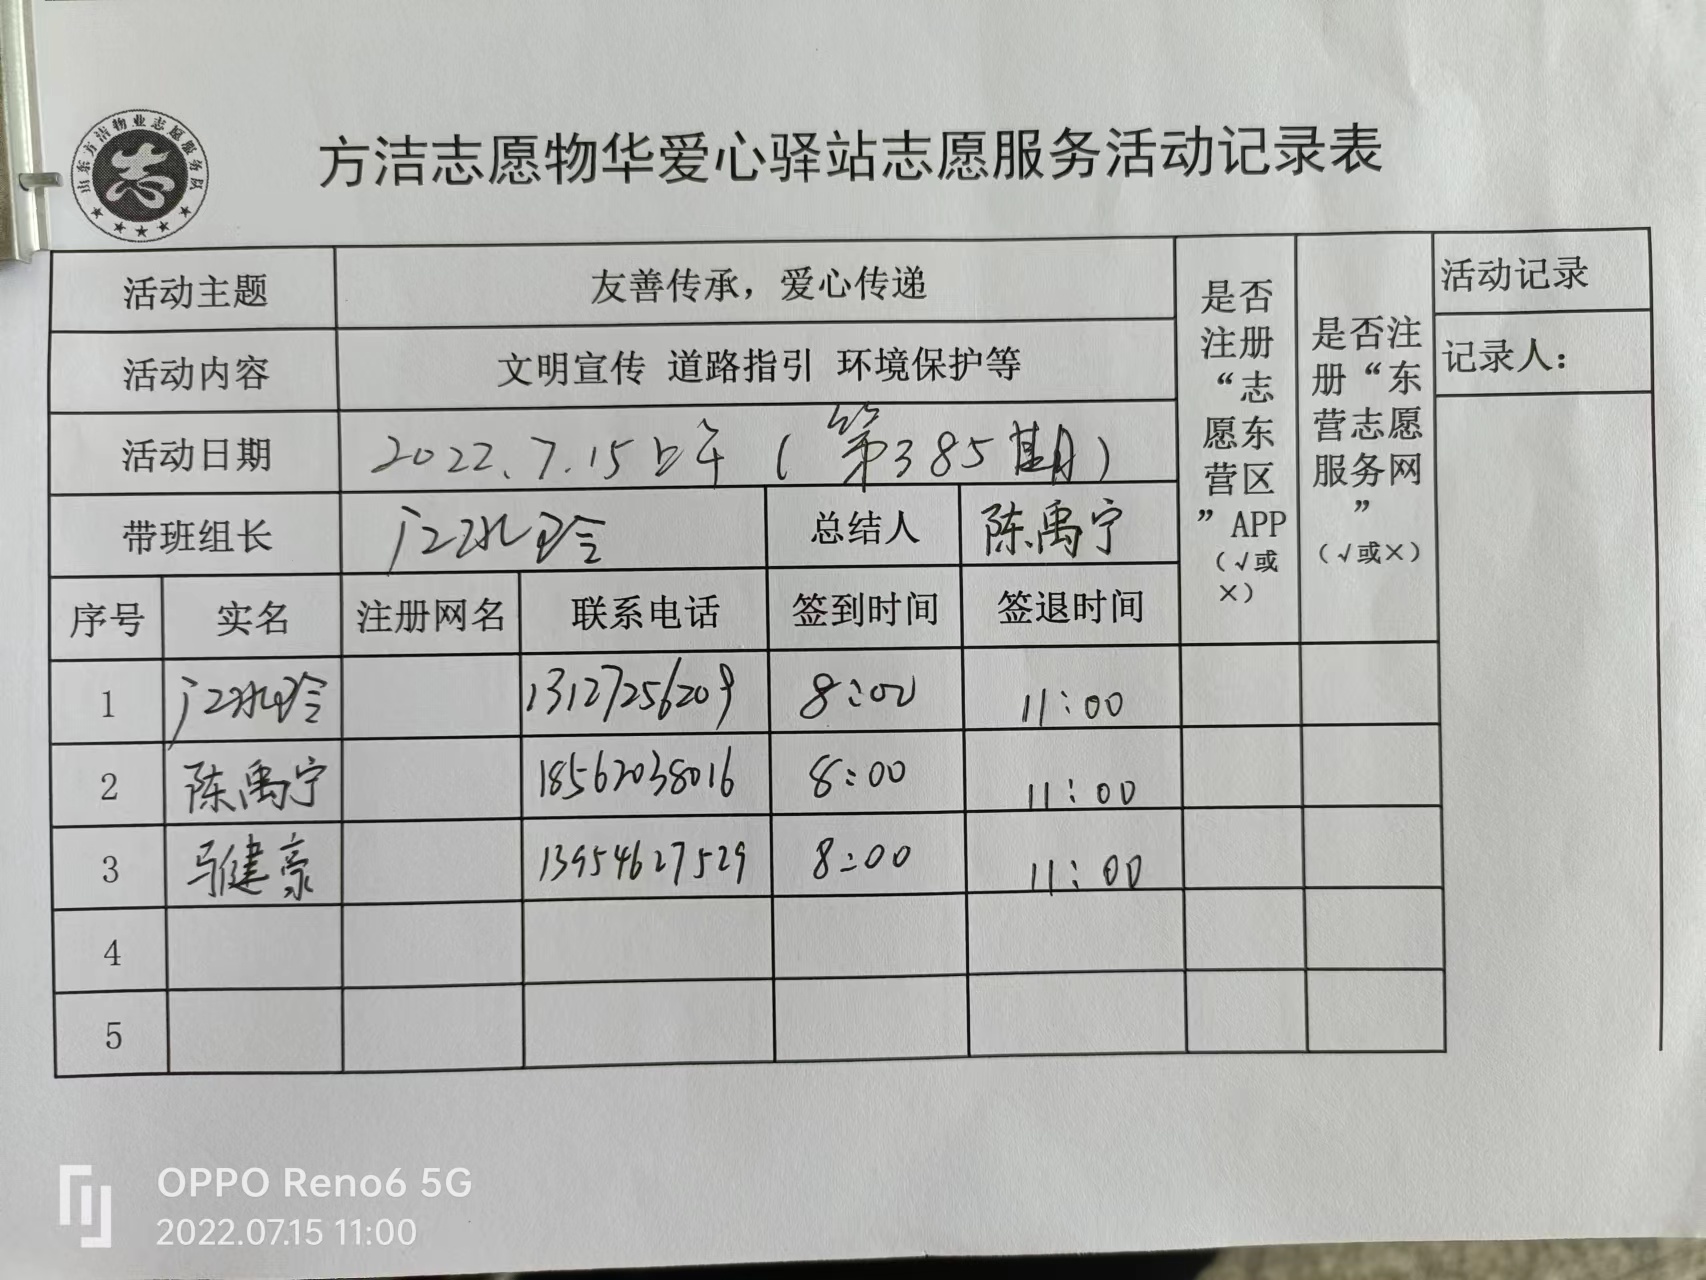 山东方洁物业志愿服务队
志
方洁志愿物华爱心驿站志愿服务活动记录表
活动主题 友善传承，爱心传递
活动内容 文明宣传 道路指引 环境保护等
活动日期 2022.7.15上午（第385期）
带班组长 总结人 陈禹宁
是否注册“志愿东营区”APP（√或×）
是否注册“东营志愿服务网”（√或×）
活动记录
记录人：
序号 实名 注册网名 联系电话 签到时间 签退时间
1 13127256209 8:00 11:00
2 陈禹宁 18562038016 8:00 11:00
3 马健豪 13954627529 8:00 11:00
4
5
OPPO Reno6 5G
2022.07.15 11:00